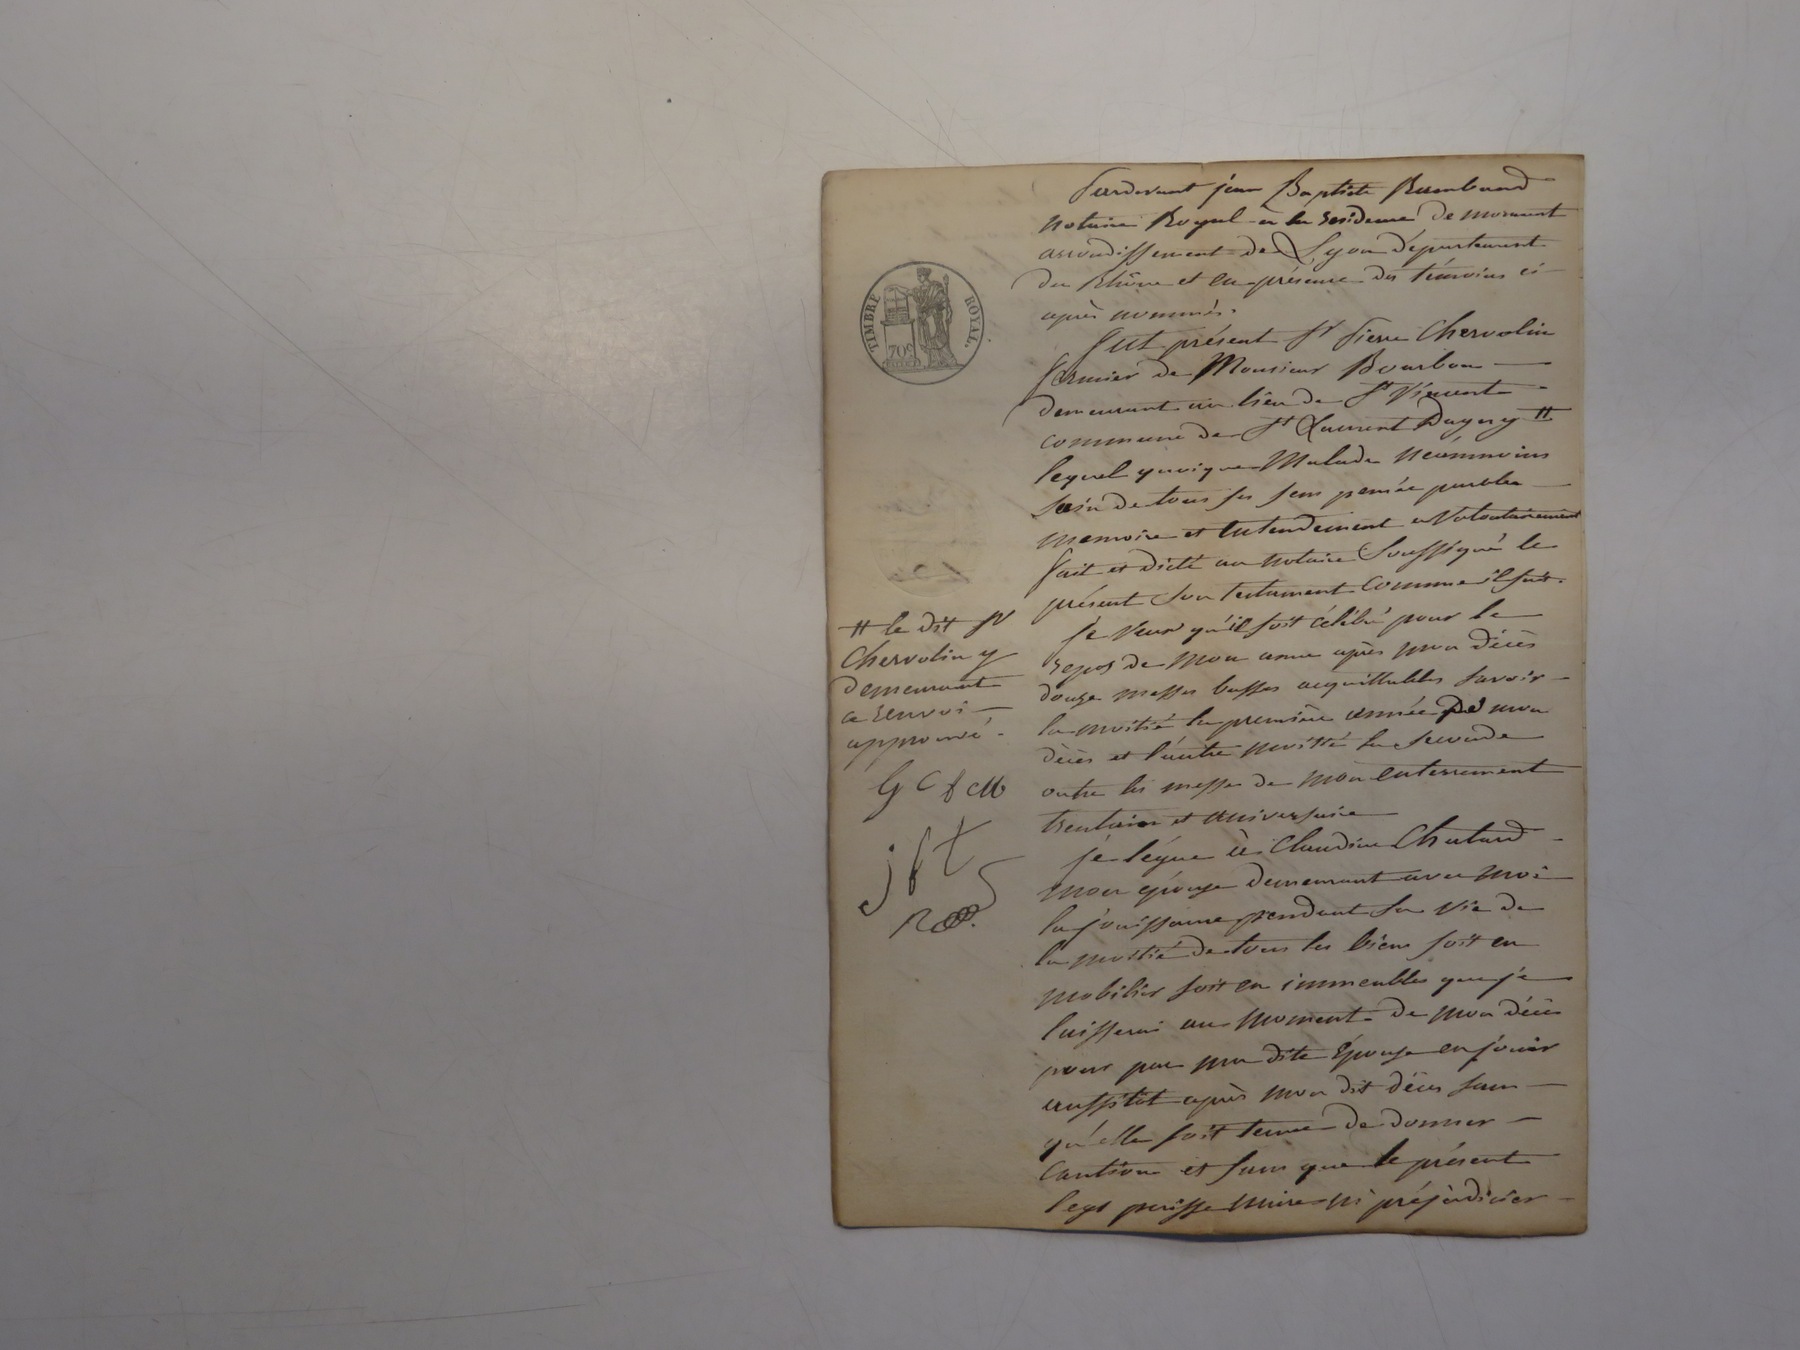 Pardevant jean Baptiste Rambaud
notaire Royal à la residence de mornant
arrondissement de Lyon département
du Rhône et en présence des témoins ci
après nommés.
Fut présent Sr Pierre Chervolin
fermier de Monsieur Bourbon
demeurant au lieu de St Vincent
commune de St Laurent Dagny #
lequel quoique Malade néanmoins
sain de tous ses sens pensée parole
memoire et entendement a Volontairement
fait et dicté au notaire Soussigné le
présent Son testament Comme il suit.
je Veux qu'il soit célébré pour le
repos de Mon ame après mon décès
douze messes basses acquittables Savoir
la moitié la première année de mon
décès et l'autre moitié la Seconde
outre les messes de mon enterrement
trentain et aniversaire
je lègue à Claudine Chatard
mon épouse demeurant avec moi
la jouissance pendant Sa Vie de
la moitié de tous les biens soit en
mobilier soit en immeubles que je
laisserai au moment de mon décès
pour par ma dite Épouse en jouir
aussitôt après mon dit décès sans
qu'elle soit tenue de donner
Caution et sans que le présent
legs puisse nuire ni préjudicier
TIMBRE ROYAL.
70c
# le dit Sr
Chervolin y
demeurant
ce renvoi
approuvé.